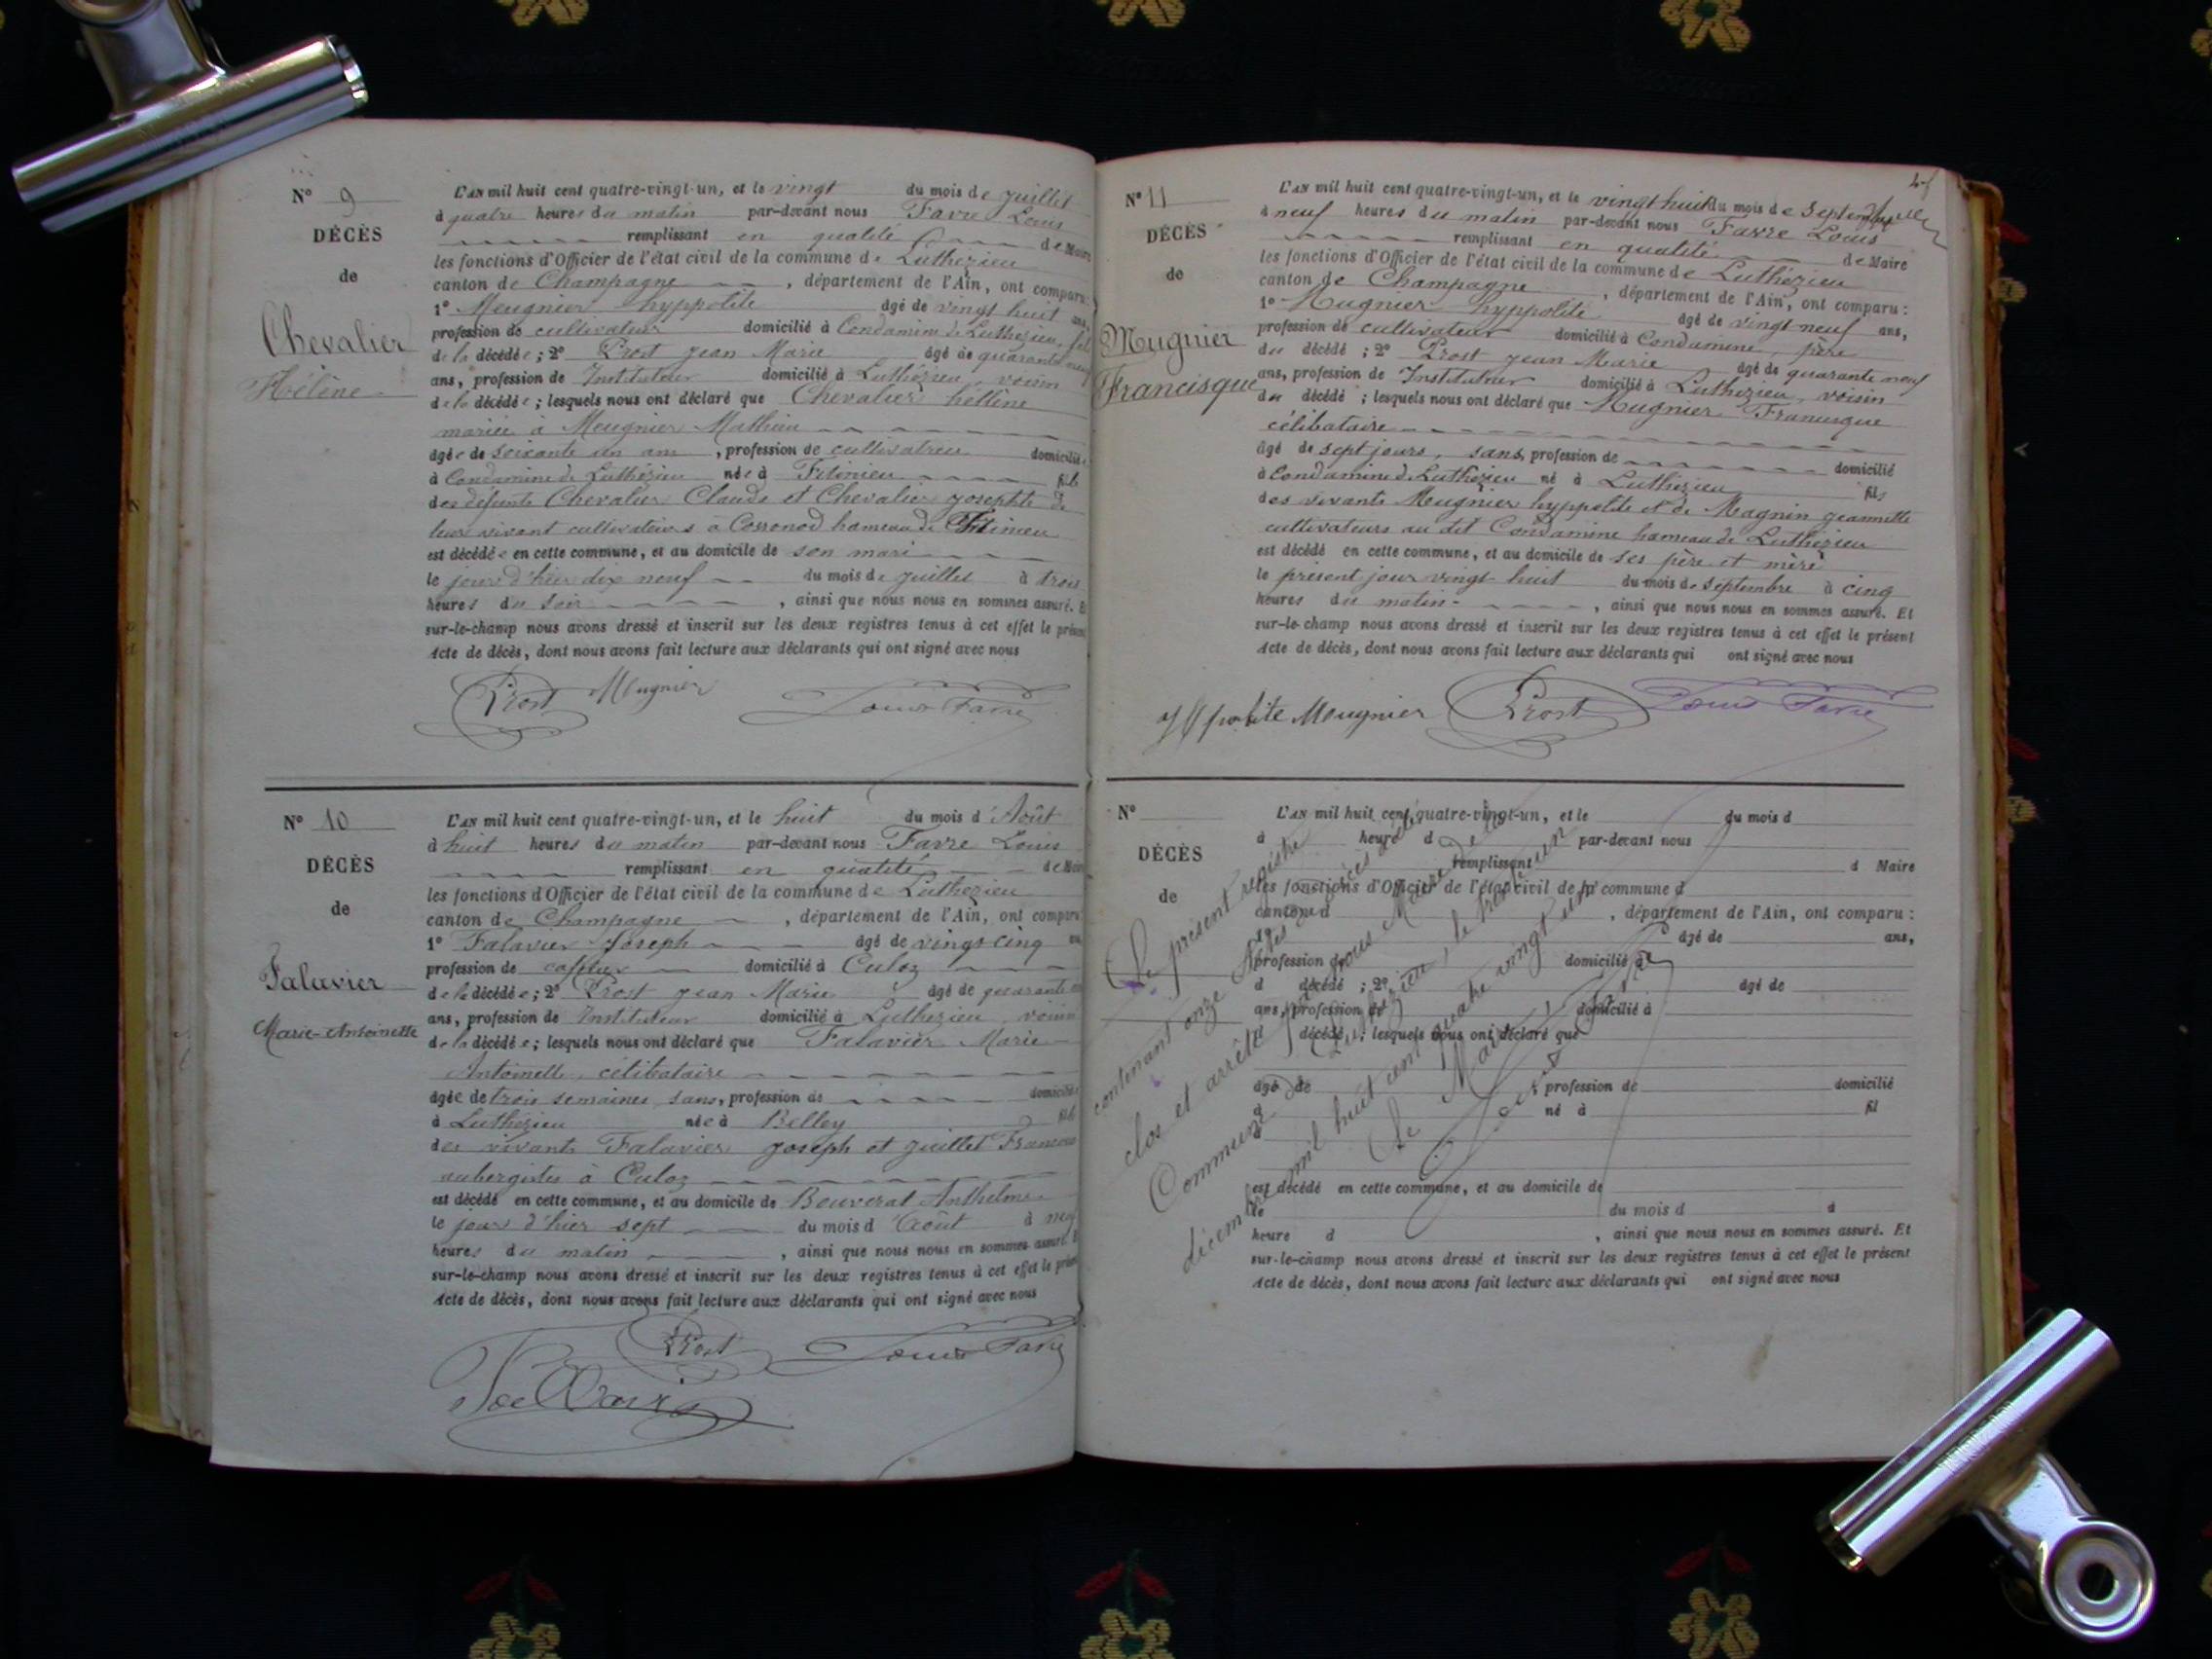 N° 9
DÉCÈS
de
Chevalier
Hélène
L'AN mil huit cent quatre-vingt-un, et le vingt du mois de juillet
à quatre heures du matin par-devant nous Favre Louis
remplissant en qualité de Maire
les fonctions d'Officier de l'état civil de la commune de Luthézieu
canton de Champagne, département de l'Ain, ont comparu:
1° Meugnier hyppolite âgé de vingt huit ans,
profession de cultivateur domicilié à Condamine de Luthézieu, fils
de la décédée; 2° Prost jean Marie âgé de quarante neuf
ans, profession de Instituteur domicilié à Luthézieu, voisin
de la décédée; lesquels nous ont déclaré que Chevalier hellène
mariée à Meugnier Mathieu
âgée de soixante un ans, profession de cultivatrice domiciliée
à Condamine de Luthézieu née à Fitinieu fille
des défunts Chevalier Claude et Chevalier josephte de
leur vivant cultivateurs à Corronod hameau de Fitinieu
est décédée en cette commune, et au domicile de son mari
le jour d'hier dix neuf du mois de juillet à trois
heures du soir, ainsi que nous nous en sommes assuré. Et
sur-le-champ nous avons dressé et inscrit sur les deux registres tenus à cet effet le présent
Acte de décès, dont nous avons fait lecture aux déclarants qui ont signé avec nous
Prost Meugnier Louis Favre
N° 10
DÉCÈS
de
Falavier
Marie-Antoinette
L'AN mil huit cent quatre-vingt-un, et le huit du mois d'Août
à huit heures du matin par-devant nous Favre Louis
remplissant en qualité de Maire
les fonctions d'Officier de l'état civil de la commune de Luthézieu
canton de Champagne, département de l'Ain, ont comparu
1° Falavier Joseph âgé de vingt cinq
profession de domicilié à Culoz
de la décédée; 2° Prost jean Marie âgé de quarante
ans, profession de Instituteur domicilié à Luthézieu, voisin
de la décédée; lesquels nous ont déclaré que Falavier Marie
Antoinette, célibataire
âgée de trois semaines, sans, profession de domiciliée
à Luthézieu née à Belley fille
des vivants Falavier joseph et juillet
aubergistes à Culoz
est décédé en cette commune, et au domicile de Bouverat Anthelme
le jour d'hier sept du mois d'Août à neuf
heures du matin, ainsi que nous nous en sommes assuré. Et
sur-le-champ nous avons dressé et inscrit sur les deux registres tenus à cet effet le présent
Acte de décès, dont nous avons fait lecture aux déclarants qui ont signé avec nous
Prost Louis Favre
N° 11
DÉCÈS
de
Mugnier
Francisque
L'AN mil huit cent quatre-vingt-un, et le vingt huit du mois de Septembre
à neuf heures du matin par-devant nous Favre Louis
remplissant en qualité de Maire
les fonctions d'Officier de l'état civil de la commune de Luthézieu
canton de Champagne, département de l'Ain, ont comparu:
1° Mugnier hyppolite âgé de vingt neuf ans,
profession de cultivateur domicilié à Condamine, père
du décédé; 2° Prost jean Marie âgé de quarante neuf
ans, profession de Instituteur domicilié à Luthézieu, voisin
du décédé; lesquels nous ont déclaré que Mugnier Francisque
célibataire
âgé de sept jours, sans, profession de domicilié
à Condamine de Luthézieu né à Luthézieu fils
des vivants Meugnier hyppolite et de Magnin jeannette
cultivateurs au dit Condamine hameau de Luthézieu
est décédé en cette commune, et au domicile de ses père et mère
le présent jour vingt huit du mois de septembre à cinq
heures du matin, ainsi que nous nous en sommes assuré. Et
sur-le-champ nous avons dressé et inscrit sur les deux registres tenus à cet effet le présent
Acte de décès, dont nous avons fait lecture aux déclarants qui ont signé avec nous
Hyppolite Meugnier Prost Louis Favre
N°
DÉCÈS
de
L'AN mil huit cent quatre-vingt-un, et le du mois d
à heure d par-devant nous
remplissant d Maire
les fonctions d'Officier de l'état civil de la commune d
canton d, département de l'Ain, ont comparu:
1° âgé de ans,
profession de domicilié à
d décédé; 2° âgé de
ans, profession de domicilié à
d décédé; lesquels nous ont déclaré que
âgé de profession de domicilié
à né à fil
d
est décédé en cette commune, et au domicile de
le du mois d à
heure d, ainsi que nous nous en sommes assuré. Et
sur-le-champ nous avons dressé et inscrit sur les deux registres tenus à cet effet le présent
Acte de décès, dont nous avons fait lecture aux déclarants qui ont signé avec nous
Le présent registre
contenant onze Actes de décès a été
clos et arrêté par nous Maire de la
Commune de Luthézieu, le trente un
décembre mil huit cent quatre vingt un
Le Maire,
Louis Favre